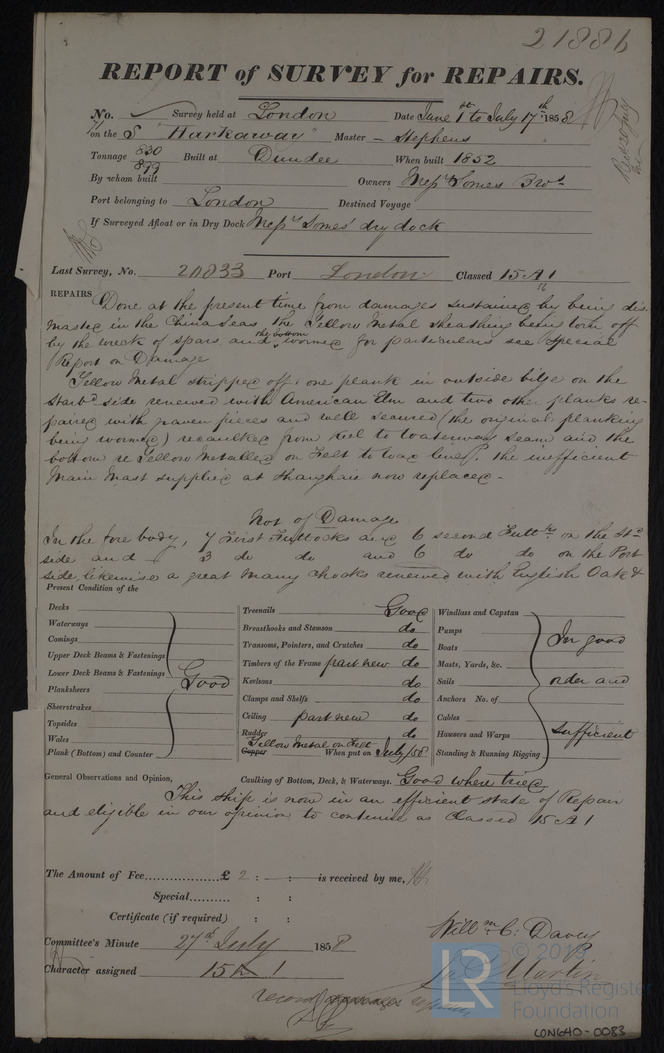 21886
REPORT of SURVEY for REPAIRS.
No. Survey held at London Date June 1st to July 17th 1858
on the S "Harkaway" Master - Stephens
Tonnage 830 899 Built at Dundee When built 1852
By whom built Owners Messrs Somes Bros
Port belonging to London Destined Voyage
If Surveyed Afloat or in Dry Dock Messrs Somes' dry dock
Last Survey, No. 20833 Port London Classed 15 A 1
REPAIRS Done at the present time from damages sustained by being dis
masted in the China Seas the Yellow Metal sheathing being torn off
by the wreck of spars, and the bottom wormed for particulars see Special
Report on Damage
Yellow Metal stripped off, one plank in outside bilge on the
Starbd side renewed with American Elm and two other planks re-
paired with graven pieces and well secured (the original planking
being wormed) recaulked from Keel to Waterway Seam and the
bottom re Yellow Metalled on Felt to load line. the inefficient
Main Mast supplied at Shanghaie now replaced -
Not of Damage
In the fore body, 7 First Futtocks and 6 second Futtks on the Std
side and 3 do do and 6 do do on the Port
side, likewise a great many chocks renewed with English Oak &
Present Condition of the
Decks
Waterways
Comings
Upper Deck Beams & Fastenings
Lower Deck Beams & Fastenings
Planksheers
Sheerstrakes
Topsides
Wales
Plank (Bottom) and Counter
Good
Treenails Good
Breasthooks and Stemson do
Transoms, Pointers, and Crutches do
Timbers of the Frame part new do
Keelsons do
Clamps and Shelfs do
Ceiling part new do
Rudder do
Yellow Metal on Felt
Copper When put on July/58
Windlass and Capstan
Pumps
Boats
Masts, Yards, &c.
Sails
Anchors No. of
Cables
Hausers and Warps
Standing & Running Rigging
In good
order and
sufficient
General Observations and Opinion, Caulking of Bottom, Deck, & Waterways. Good where tried
This ship is now in an efficient state of Repair
and eligible in our opinion to continue as Classed 15 A 1
The Amount of Fee £ 2 : - : - is received by me,
Special : :
Certificate (if required) : :
Willm C: Davey
Committee's Minute 27th July 1858
Jas Martin
Character assigned 15 A 1
© 2019
Lloyd's Register
Foundation
LR
LON640-0083